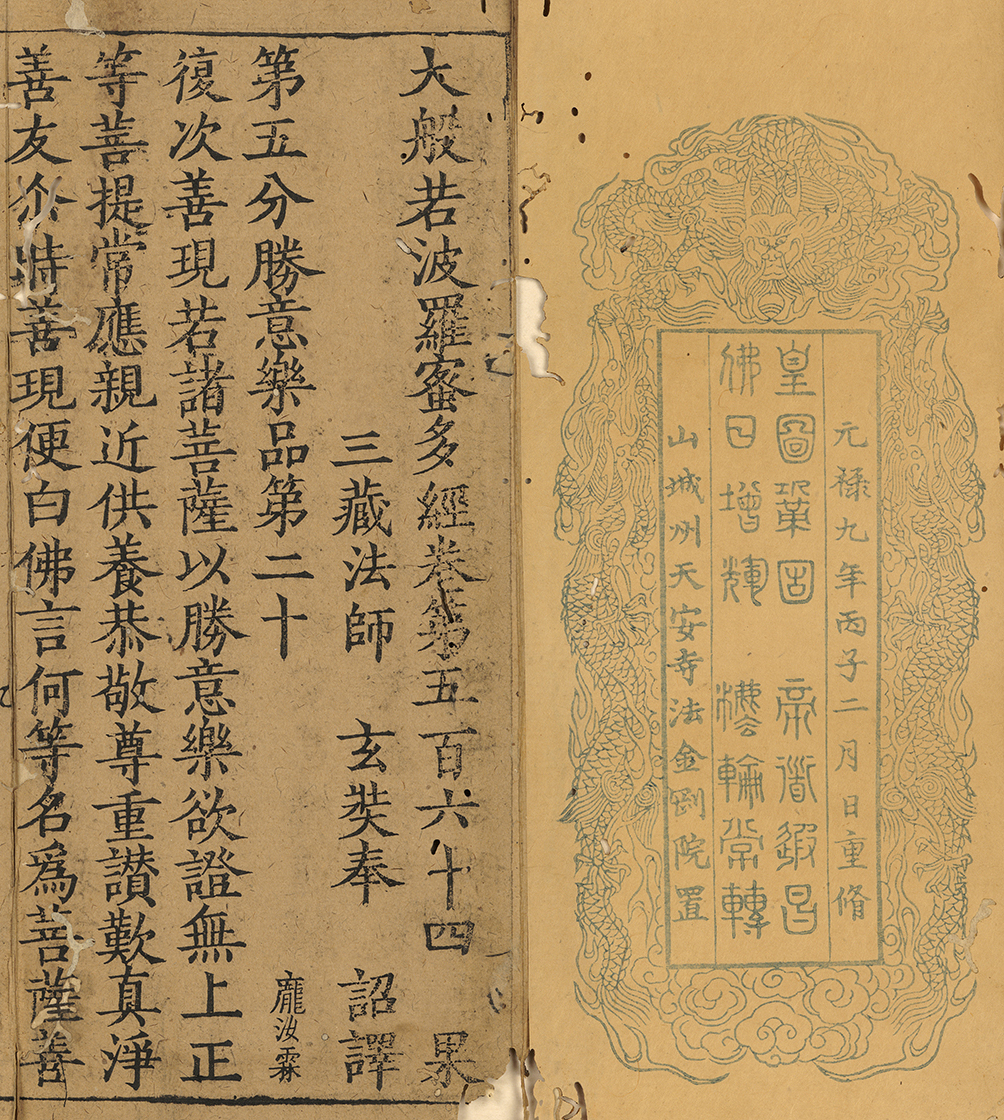 元禄九年丙子二月日重脩
皇圖鞏固 帝道遐昌
佛日增輝 法輪常轉
山城州天安寺法金剛院置
大般若波羅蜜多經卷第五百六十四 果
三藏法師 玄奘奉 詔譯
第五分勝意樂品第二十 龐汝霖
復次善現若諸菩薩以勝意樂欲證無上正
等菩提常應親近供養恭敬尊重讃歎真淨
善友尒時善現便白佛言何等名爲菩薩善